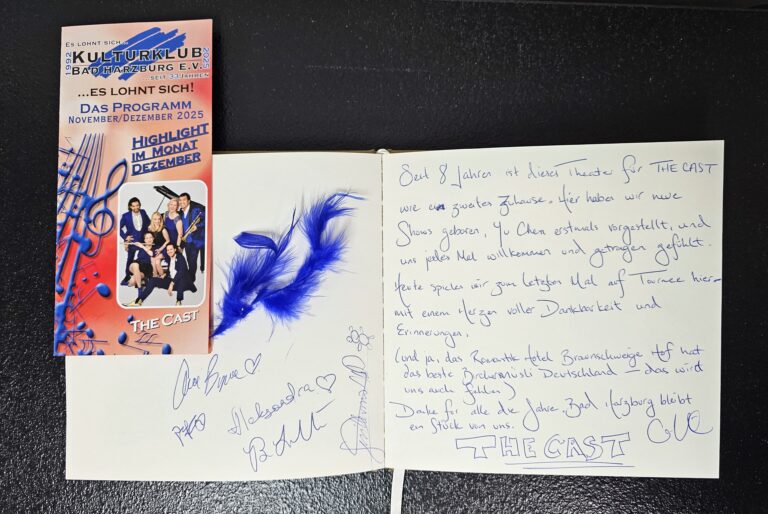 Es lohnt sich...
1992
KULTURKLUB
2025
BAD HARZBURG E.V.
...SEIT 33 JAHREN
...ES LOHNT SICH!
DAS PROGRAMM
NOVEMBER/DEZEMBER 2025
HIGHLIGHT
IM MONAT
DEZEMBER
THE CAST
Aleksandra
Seit 8 Jahren ist dieses Theater für THE CAST
wie ein zweites Zuhause. Hier haben wir neue
Shows geboren, Yu Chen erstmals vorgestellt, und
uns jedes Mal willkommen und getragen gefühlt.
Heute spielen wir zum letzten Mal auf Tournee hier–
mit einem Herzen voller Dankbarkeit und
Erinnerungen.
(und ja, das Romantik Hotel Braunschweiger Hof hat
das beste Birchermüsli Deutschland – das wird
uns auch fehlen)
Danke für alle die Jahre. Bad Harzburg bleibt
ein Stück von uns.
THE CAST